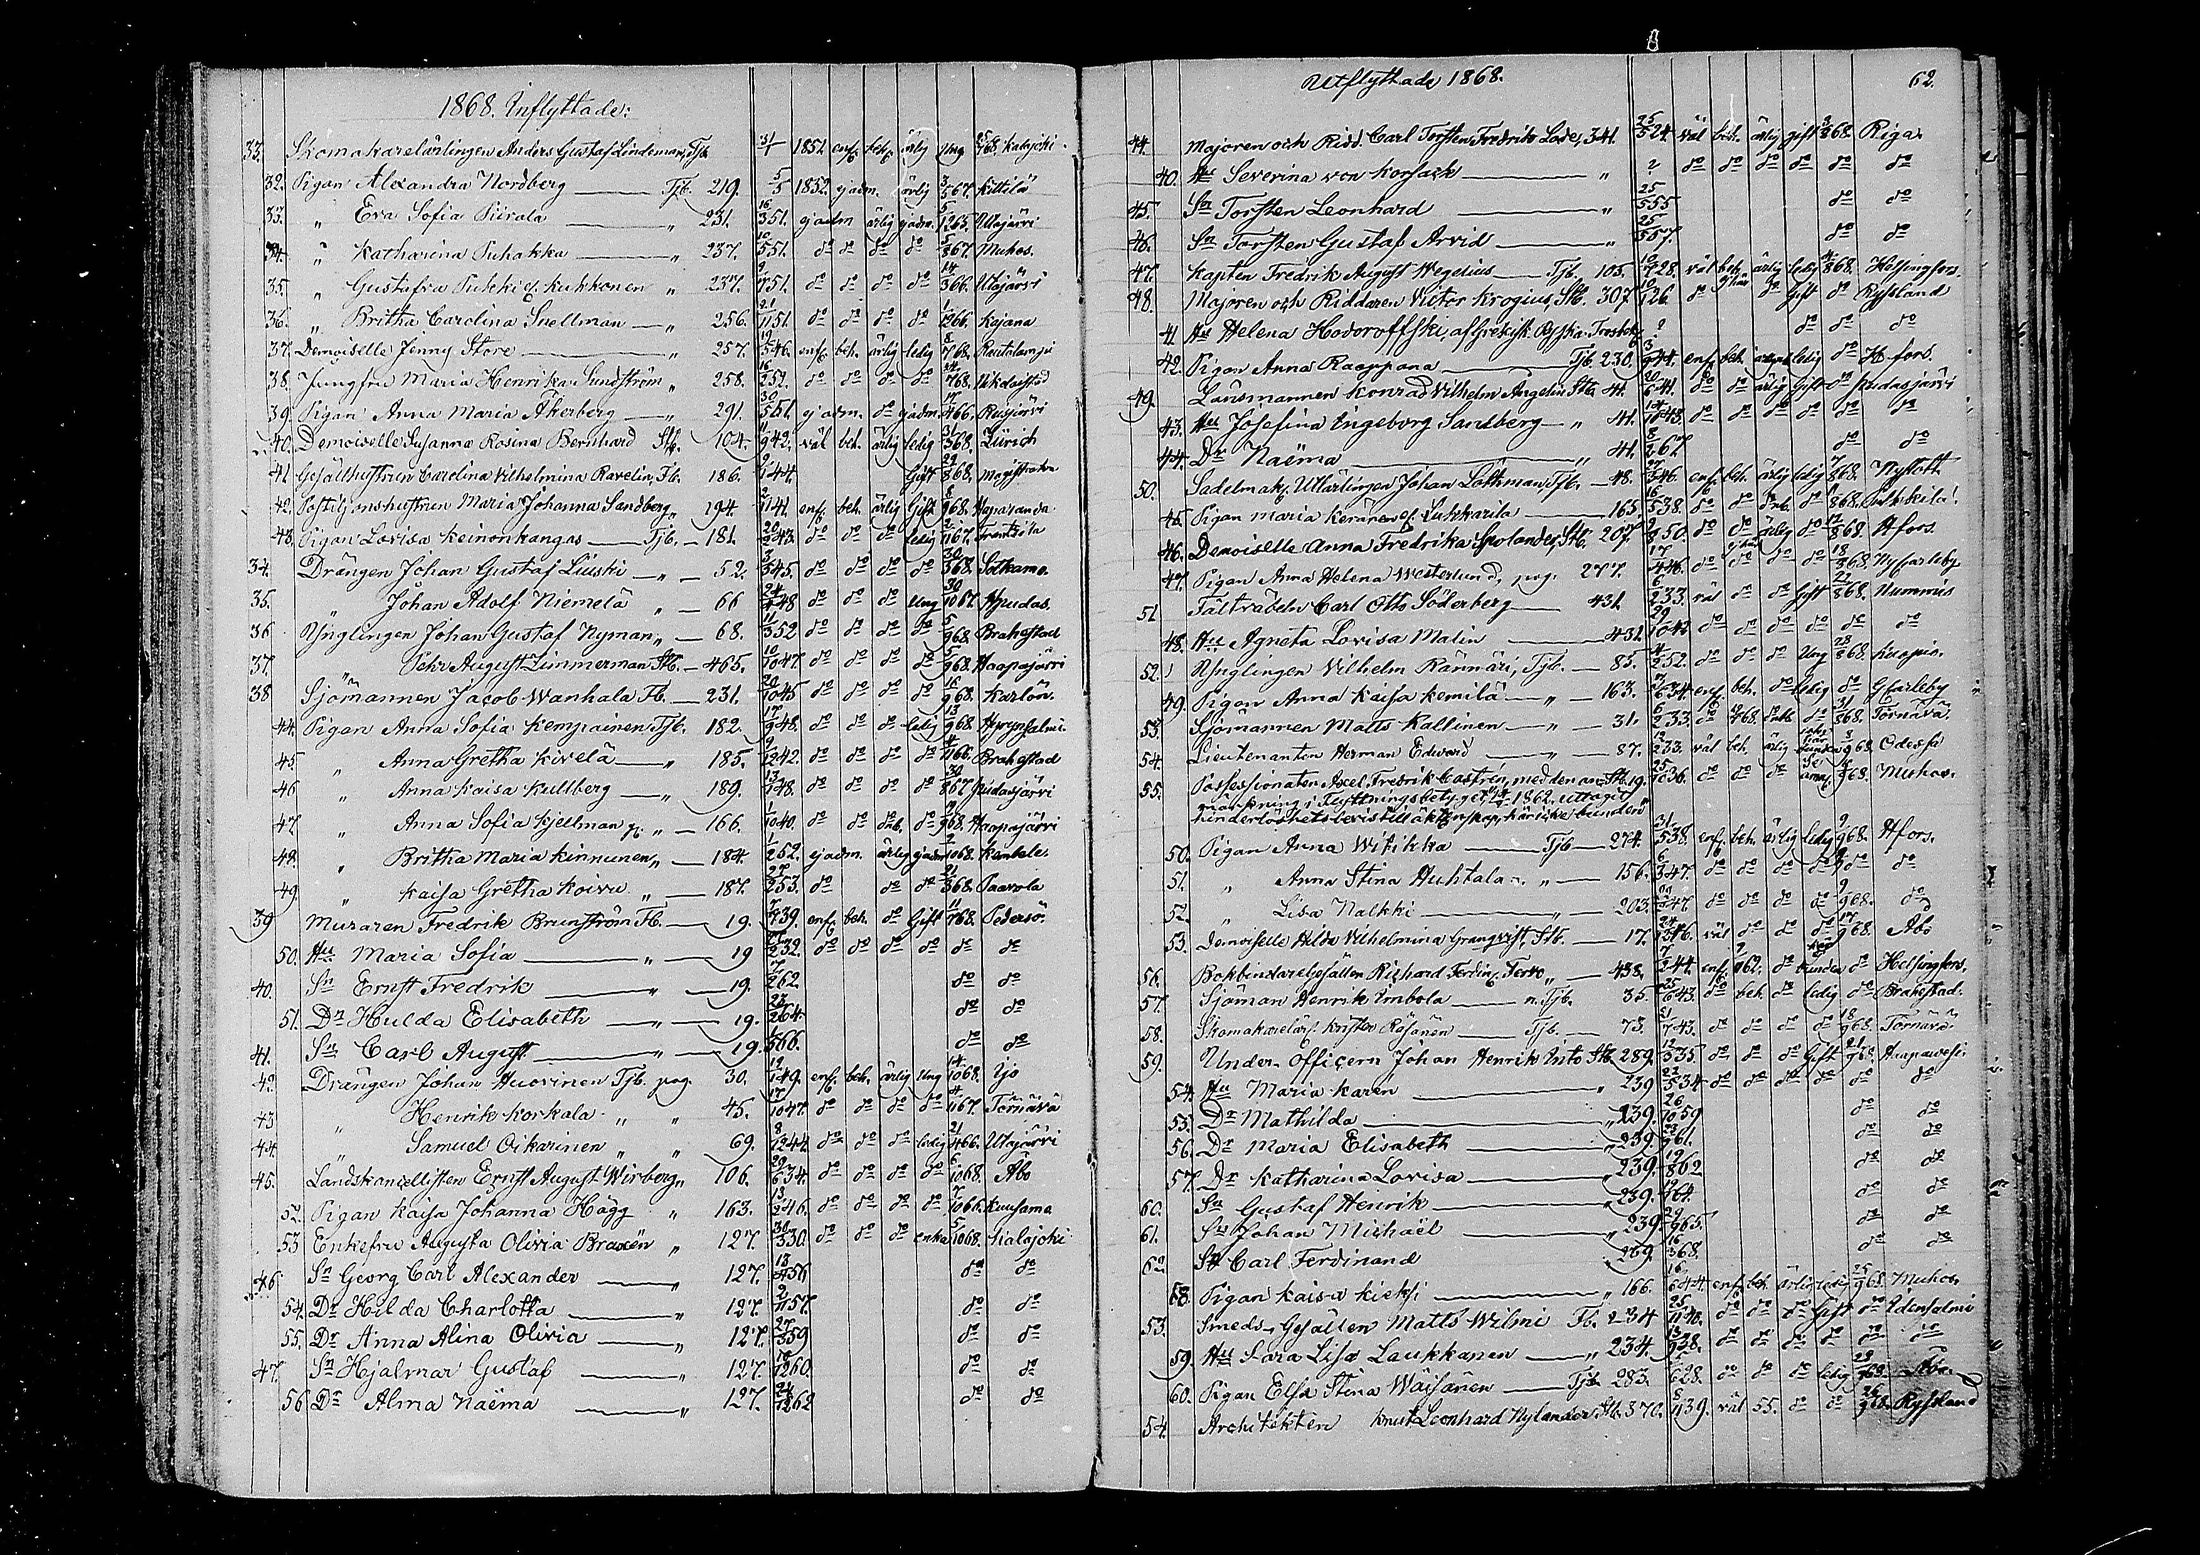 1868. Inflyttade:
33. Skomakarelärlingen Anders Gustaf Lindeman, Tjb. 1851 enf. beh. ärlig Ung 68. Kalajoki
32. Pigan Alexandra Nordberg Tjb. 219. 5/5 1852. ej adm. ärlig 67. Kittilä
33. " Eva Sofia Piirala " 231. 16/3 51. ej adm ärlig ej adm. 5/12 65. Utajärvi
34. " Katharina Puhakka " 237. 10/5 51. do do do do 5/8 67. Muhos.
35. " Gustafva Pukki ell. Kukkonen " 237. 51. do do do do 14/3 66. Utajärvi
36. " Britha Carolina Snellman " 256. 21/11 51 do do do do 1/12 66. Kajana
37. Demoiselle Jenny Store " 257. 19/5 46. enf. beh. ärlig ledig 8/7 68. Rautalampi
38. Jungfru Maria Henrika Sundström " 258. 16/2 52. do do do do 24/7 68.
39. Pigan Anna Maria Åkerberg " 291. 30/5 51. ej adm. do ej adm. 17/4 66. Reisjärvi
40. Demoiselle Susanna Rosina Bernhard Stb. 104. 11/9 42. väl beh. ärlig ledig 31/3 68. Zürich
41 Gesällhustrun Carolina Vilhelmina Ravelin, Fb. 186. 44. Gift 29/8 68.
42. Postiljonshustrun Maria Johanna Sandberg " 194. 2/11 41. enf. beh. ärlig Gift 8/9 68. Haparanda
43. Pigan Lovisa Keinonkangas Tjb. 181. 20/2 43. do do do ledig 2/11 67. Frantsila
34. Drängen Johan Gustaf Liuski " 52. 3/3 45. do do do do 30/3 68. Sotkamo.
35. " Johan Adolf Niemelä " 66 24/4 48 do do do Ung 30/10 67. Hpudas.
36 Ynglingen Johan Gustaf Nyman " 68. 11/3 52 do do do do 5/9 68. Brahestad
37. " Pehr August Zimmerman Stb. 465. 10/10 47. do do do do 5/9 68. Haapajärvi
38 Sjömannen Jacob Wanhala Fb. 231. 20/10 45 do do do do 16/9 68. Karlön.
44. Pigan Anna Sofia Kempainen Tjb. 182. 17/9 48. do do do ledig 13/9 68
45 " Anna Gretha Kivelä " 185. 9/12 42. do do do do 4/11 66. Brahestad
46 " Anna Kaisa Kullberg " 189. 13/1 48. do do do do 30/8 67. Pudasjärvi
47. " Anna Sofia Kjellman " 166. 1/10 40. do do do 9 68. Haapajärvi
48. " Britha Maria Kinnunen " 184. 1/2 52. ej adm. ärlig ej adm 2/10 68. Kantele
49. " Kaisa Gretha Koivu " 187. 27/2 53. do do do 21/3 68. Paavola
39 Muraren Fredrik Brunström Fb. 19. 7/7 39. enf. beh. do Gift 11/7 68. Pedersö.
50. Hu Maria Sofia " 19 2 32. do do do do do do
40. Sn Ernst Fredrik " 19. 7/2 62 do do
51. Dr Hulda Elisabeth " 19. 23/2 64. do do
41. Sn Carl August " 19. 1/5 66. do do
42. Drängen Johan Huovinen Tjb. pag. 30. 12/1 49. enf. beh. ärlig Ung 14/10 68. Ijo
43 " Henrik Korkala " " 45. 17/10 47. do do do do 4/11 67. Törnävä
44. " Samuel Oikarinen " " 69. 8/12 44. do do do ledig 21/4 66. Utajärvi
45. Landskancellisten Ernst August Wirberg " 106. 29/6 34. do do do do 6/10 68. Åbo
52. Pigan Kaisa Johanna Hägg " 163. 13/2 46. do do do do 7/10 66. Kuusamo
53 Enkefru Augusta Olivia Braxén " 127. 30/3 30. do do do enka 5/10 68. Kalajoki
46. Sn Georg Carl Alexander " 127. 13/4 56 do do
54. Dr Hilda Charlotta " 127. 2/11 57. do do
55. Dr Anna Alina Olivia " 127. 27/3 59 do do
47. Sn Hjalmar Gustaf " 127. 10/12 60. do do
56 Dr Alma Naëma " 127. 24/12 62 do do
Utflyttade 1868. 62.
44. Majoren och Ridd. Carl Torsten Fredrik Lode, 341. 25/5 24. väl beh. ärlig gift 68. Riga
40. Hu Severina von Korsack " ? do do do do do do
45. Sn Torsten Leonhard " 25/5 55 do do
46. Sn Torsten Gustaf Arvid " 25/5 57. do do
47. Kapten Fredrik August Wegelius Tjb. 105. 10/7 28. väl beh. ärlig ledig 4/8 68. Helsingfors.
48. Majoren och Riddaren Victor Krogius, Stb. 307. 10/1 26. do do Gift do Ryssland
41 Hu Helena Hodoroffski, af Grekisk Ryska ? do do do
42. Pigan Anna Raappana Tjb. 230. 3/9 44. enf. beh. ledig do Hfors.
49. Länsmannen Konrad Vilhelm Angelin Stb. 41. 20/6 41. do do ärlig Gift do Pudasjärvi
43. Hu Josefina Ingeborg Sandberg " 41. 14/10 43. do do do do do do
44. Dr Naëma " 41. 8/2 67. do do
50. Sadelmak. Utlärlingen Johan Löthman, Tjb. 48. 27/3 46. enf. beh. ärlig ledig 7/8 68. Nyslott
45. Pigan Maria Keränen ell. Lukkarila 165. 16/5 38. do do do 11/8 68. Pulkkila.
46. Demoiselle Anna Fredrika Spolander, Stb. 207. 2/8 50. do do ärlig do 17/8 68. Hfors.
47. Pigan Anna Helena Westerlund, pag. 277. 17/4 46. do do do do 18/8 68. Nycarleby
51 Fältväbeln Carl Otto Söderberg 431. 6/2 33. väl do do Gift 22/8 68. Nummis
48. Hu Agneta Lovisa Malin 431. 29/10 43 do do do do do do
52. Ynglingen Vilhelm Rännäri, Tjb. 85. 4/2 52. do do do Ung 28/8 68. Kuopio.
49. Pigan Anna Kaisa Kemilä " 163. 6 34. enf. beh. do ledig do Gcarleby
53. Sjömannen Matts Kallinen " 31. 6/2 33. do 68. do 31/8 68. Törnävä.
54. Lieutenanten Herman Edward " 87. 12/2 33. väl beh. ärlig 8/9 68. Odessa
55. Possessionaten Axel Fredrik Castrén, med den an- Stb. 19. 25 36. do do do 68. Muhos.
märkning i Flyttningsbetyget 1862. uttagit
hinderlöshetsbevis till äktenskap, här icke bunden
50. Pigan Anna Witikka Tjb 274. 31/5 38. enf. beh. ärlig ledig 9/9 68. Hfors.
51. " Anna Stina Huhtala " 156. 6/3 47. do do do do do do
52. " Lisa Nalkki " 203. 47. do do do do 9/9 68. do
53. Demoiselle Hilda Vilhelmina Granqvist, Stb. 17. 24/12 46. väl do do do 17/9 68. Åbo
56. Bokbindaregesällen Richard Ferdin. " 438. 7/2 44. enf. 62. do bunden do Helsingfors.
57. Sjöman Henrik Imbola n. Tjb. 35. 25/6 43. do beh. do ledig do Brahestad.
58. Skomakarelärl. Krister Räsänen Tjb. 73. 21/7 43. do do do do 18/9 68. Törnävä
59. Under-Officern Johan Henrik Into Stb 239. 12/5 35 do do do Gift 21/9 68. Haapavesi
54. Hu Maria Karen " 239 22/5 34 do do do do do do
55. Dr Mathilda " 239. 26/10 59 do do
56. Dr Maria Elisabeth " 239. 22/9 61. do do
57. Dr Katharina Lovisa " 239. 19/8 62 do do
60. Sn Gustaf Henrik " 239. 64. do do
61. Sn Johan Michaël " 239. 29/9 65. do do
62 Sn Carl Ferdinand 239. 16/3 68. do do
58. Pigan Kaisa Kicksi " 166. 16/6 44 enf. beh. ärlig ledig 25/9 68. Muhos
53. Smeds-Gesällen Matts Wilmi Fb. 234 25/11 40. do do do Gift do Idensalmi
59. Hu Sara Lisa Laukkanen " 234. 13/9 38. do do do do do do
60. Pigan Elsa Stina Wäisänen Tjb 283. 6 28. do do do ledig 29/9 68. Åbo
54. Architekten Knut Leonhard Nylander, Stb. 370. 8/11 39. väl 55. do do 26/9 68. Ryssland